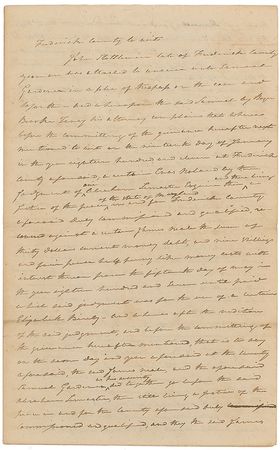 Frederick County to wit
John late of Frederick County
yeoman was attached to answer unto Samuel
Gardner in a plea of trespass on the case and
whereupon the said Samuel by Roger
Brooke Taney his attorney complains that whereas
before the committing of the grievance hereafter next
mentioned to wit on the nineteenth day of January
in the year eighteen hundred and eleven at Frederick
County aforesaid, a certain had by the
Judgment of one Abraham Esq. then being
Justice of the peace of the State of Maryland in Frederick County
aforesaid duly commissioned and qualified, re
covered against a certain James Neale the sum of
thirty dollars current money debt, and nine shillings
and four pence half penny like money costs with
interest thereon from the fifteenth day of may in
the year eighteen hundred and seven until paid
which said judgment was for the use of a certain
Elizabeth and whereas after the rendition
of the said judgment, and before the committing of
the grievance hereafter mentioned, that is to say
on the same day and year aforesaid at the County
aforesaid, the said James Neale and the aforesaid
Samuel Gardner as his security did together go before the said
Abraham then still being a Justice of the
peace in and for the County aforesaid duly
commissioned and qualified and they the said James